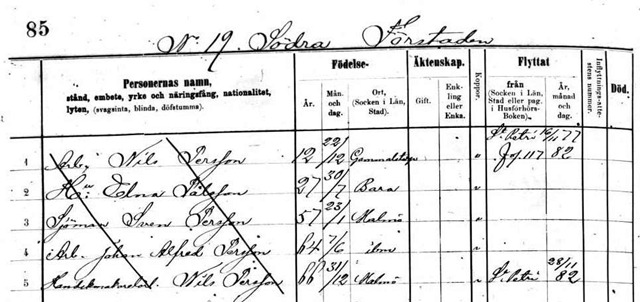 85
No 19. Södra Förstaden
Personernas namn,
stånd, embete, yrke och näringsfång, nationalitet,
lyten, (svagsinta, blinda, döfstumma).
Födelse-
År.
Mån. och dag.
Ort, (Socken i Län, Stad).
Äktenskap.
Gift.
Enkling eller Enka.
Koppor.
Flyttat
från (Socken i Län, Stad eller pag. i Husförhörs-Boken.)
År, månad och dag.
Inflyttnings-attestens nummer.
Död.
St Petri 16/11 77
1 Arb. Nils Persson 12 22/12 " Fög. 117 82
2 Hu: Edna Pålsson 27 30/7 Bara "
3 Sjöman Sven Persson 57 23/1 Malmö "
4 Arb. Johan Alfred Persson 64 7/6 ibm "
5 Nils Persson 66 31/12 Malmö " St Petri 28/11 82